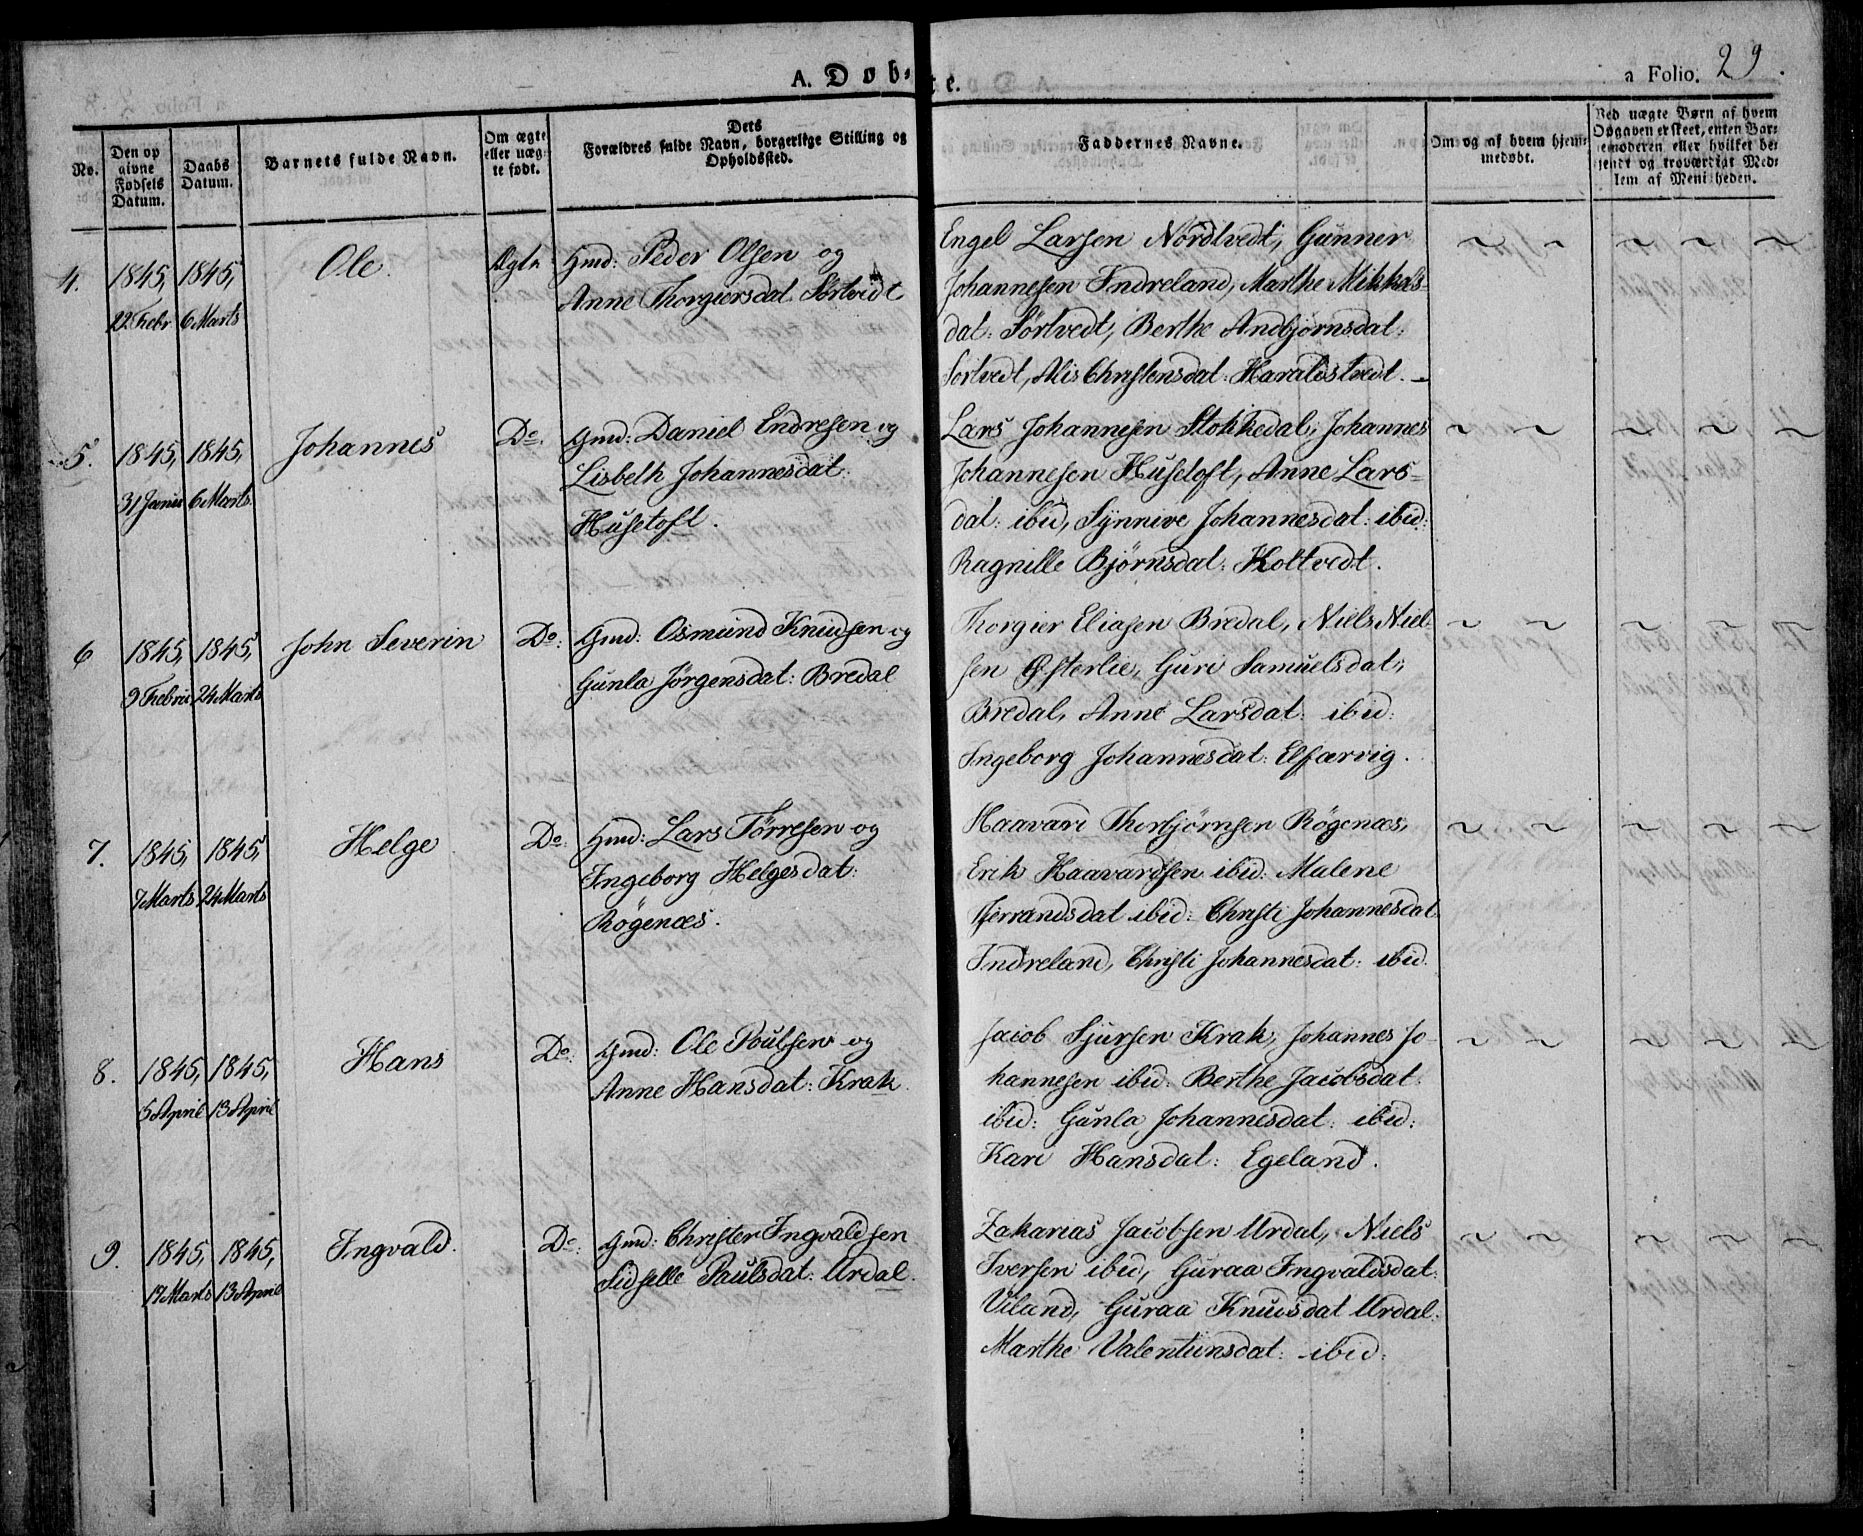 A. Døb-
te.
a Folio. 29.
No.
Den op
givne
Fødsels
Datum.
Daabs
Datum.
Barnets fulde Navn.
Om ægte
eller uæg-
te født.
Dets
Forældres fulde Navn, borgerlige Stilling og
Opholdssted.
Faddernes Navne.
Om og af hvem hjem-
medøbt.
Ved uægte Børn af hvem
Opgaven er skeet, enten Bar-
nemoderen eller hvilket be-
kjendt og troværdigt Med-
lem af Menigheden.
4.
1845,
22 Febr
1845,
6 Marts
Ole.
Ægte
Gmd: Peder Olsen og
Anne Thorgiersdat Sörtvedt
Engel Larsen Nordtvedt, Gunner
Johannesen Indreland, Marthe Mikkels-
dat: Sörtvedt, Berthe Andbjørnsdat:
Sörtvedt, Alis Christensdat: Haraldstvedt. -
5.
1845,
31 Janu
1845,
6 Marts.
Johannes
Do.
Gmd: Daniel Endresen og
Lisbeth Johannesdat:
Husetoft.
Lars Johannesen Stokkedal, Johannes
Johannesen Husetoft, Anne Lars-
dat: ibid, Synnive Johannesdat: ibid:
Ragnille Bjørnsdat: Holtvedt.
6
1845,
9 Febru
1845,
24 Marts
John Severin
Do.
Gmd: Osmund Knudsen og
Gunla Jørgensdat: Bredal
Thorgier Eliasen Bredal, Niels Niel-
sen Østerlie, Guri Samuelsdat:
Bredal, Anne Larsdat: ibid:
Ingeborg Johannesdat: Elfærvig.
7.
1845,
7 Marts
1845,
24 Marts
Helge
Do.
Gmd: Lars Törresen og
Ingeborg Helgesdat:
Rögenæs.
Haavard Thorbjörnsen Rögenæs,
Erik Haavardsen ibid: Malene
Tjerrandsdat ibid: Christi Johannesdat
Indreland, Christi Johannesdat: ibid.
8.
1845,
5 April
1845,
13 April
Hans
Do.
Gmd: Ole Poulsen og
Anne Hansdat: Krak.
Jacob Sjursen Krak, Johannes Jo-
hannesen ibid: Berthe Jacobsdat:
ibid: Gunla Johannesdat: ibid:
Kari Hansdat: Egeland.
9.
1845,
17 Marts
1845,
13 April
Ingvald.
Do.
Gmd: Christer Ingvaldsen
Sidselle Paulsdat: Urdal.
Zakarias Jacobsen Urdal, Niels
Iversen ibid, Guraa Ingvaldsdat:
Viland, Guraa Knudsdat Urdal.
Marthe Valentinsdat: ibid: